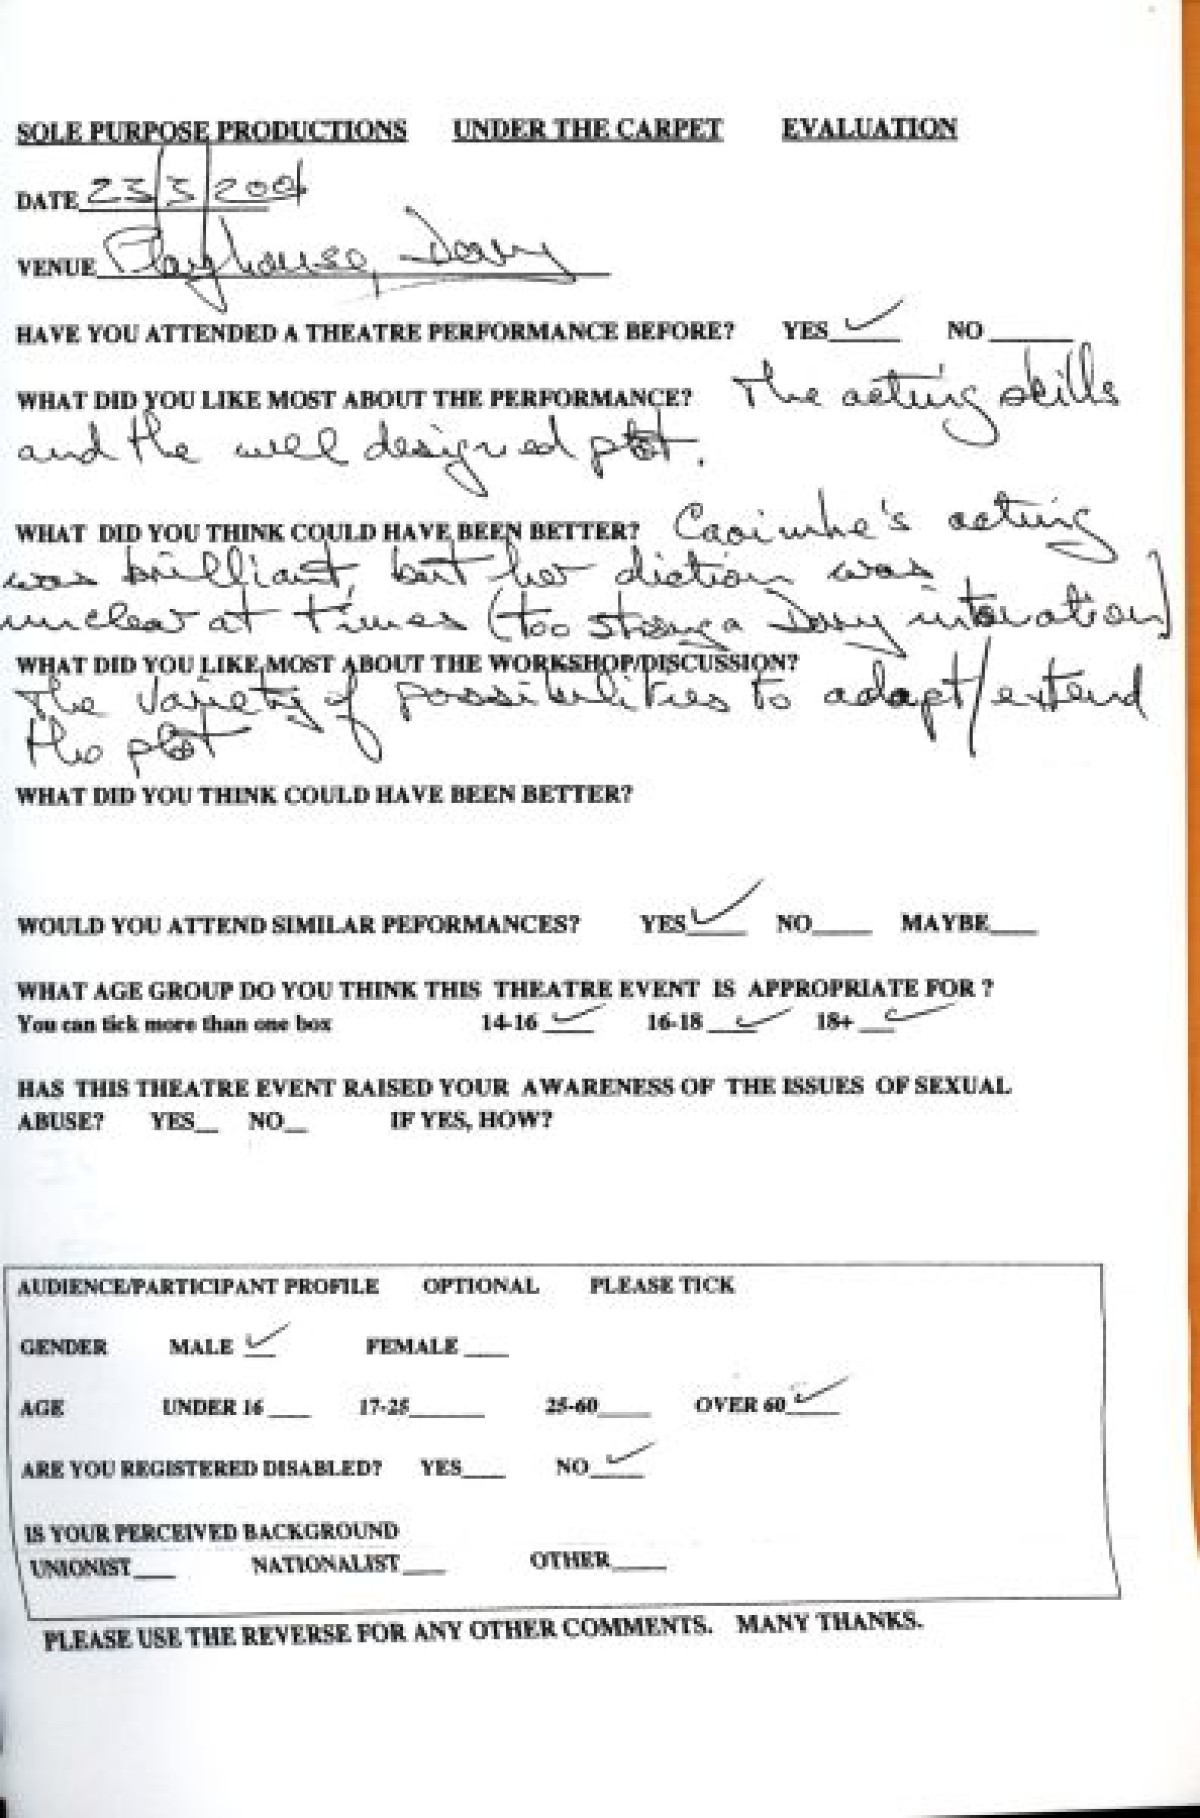 SOLE PURPOSE PRODUCTIONS UNDER THE CARPET EVALUATION
DATE 23/3/200
VENUE Playhouse, Derry
HAVE YOU ATTENDED A THEATRE PERFORMANCE BEFORE? YES ✓ NO
WHAT DID YOU LIKE MOST ABOUT THE PERFORMANCE? The acting skills
and the well designed plot.
WHAT DID YOU THINK COULD HAVE BEEN BETTER? Caoimhe's acting
was brilliant, but her diction was
unclear at times (too strong a Derry intonation)
WHAT DID YOU LIKE MOST ABOUT THE WORKSHOP/DISCUSSION?
The variety of possibilities to adapt/extend
the plot
WHAT DID YOU THINK COULD HAVE BEEN BETTER?
WOULD YOU ATTEND SIMILAR PEFORMANCES? YES ✓ NO MAYBE
WHAT AGE GROUP DO YOU THINK THIS THEATRE EVENT IS APPROPRIATE FOR ?
You can tick more than one box 14-16 ✓ 16-18 ✓ 18+ ✓
HAS THIS THEATRE EVENT RAISED YOUR AWARENESS OF THE ISSUES OF SEXUAL
ABUSE? YES NO IF YES, HOW?
AUDIENCE/PARTICIPANT PROFILE OPTIONAL PLEASE TICK
GENDER MALE ✓ FEMALE
AGE UNDER 16 17-25 25-60 OVER 60 ✓
ARE YOU REGISTERED DISABLED? YES NO ✓
IS YOUR PERCEIVED BACKGROUND
UNIONIST NATIONALIST OTHER
PLEASE USE THE REVERSE FOR ANY OTHER COMMENTS. MANY THANKS.